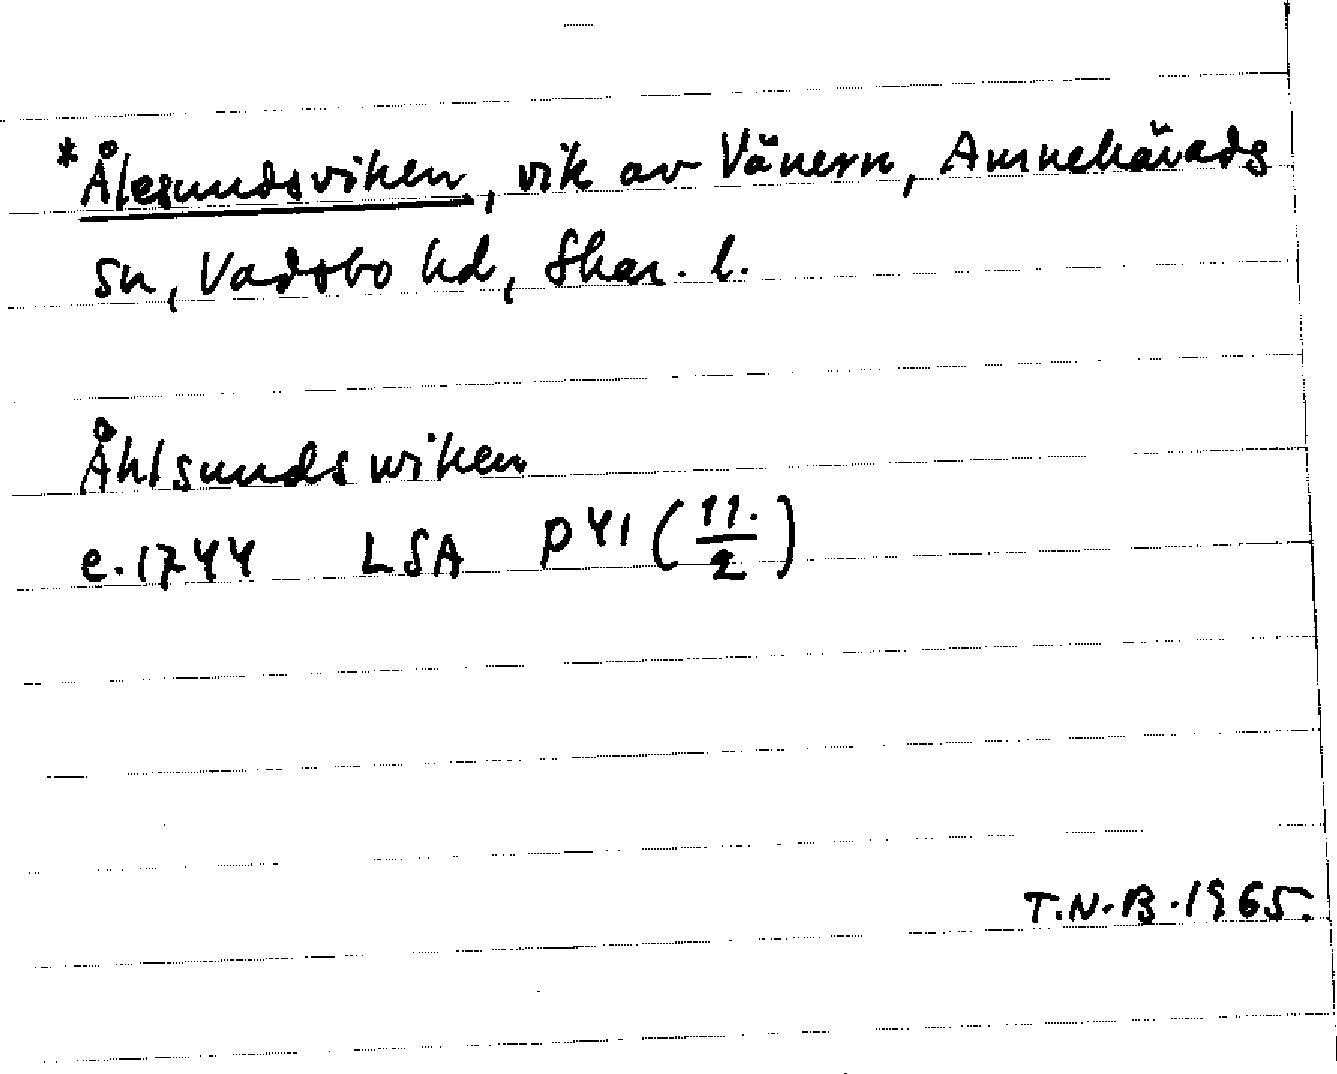 *Ålesundsviken, vik av Vänern, Amnehärads
sn, Vadsbo hd, Skar. l.
Åhlsundswiken
e. 1744 LSA P41 (11./2)
T.N.B. 1965.